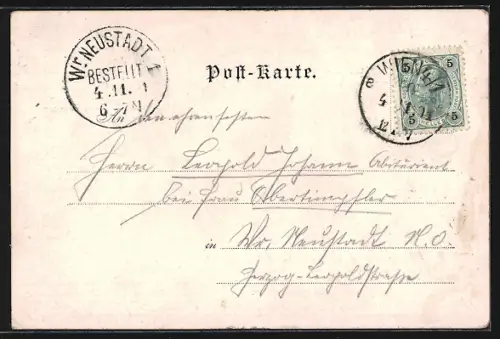 Wr. NEUSTADT 1
BESTELLT
4.11.
6-7N
Post-Karte.
WIEN 4/1
5 5
5 5
An
Herrn Leopold Johann Abiturient
bei Frau
in Wr. Neustadt N.Ö.
Herzog-Leopoldstraße